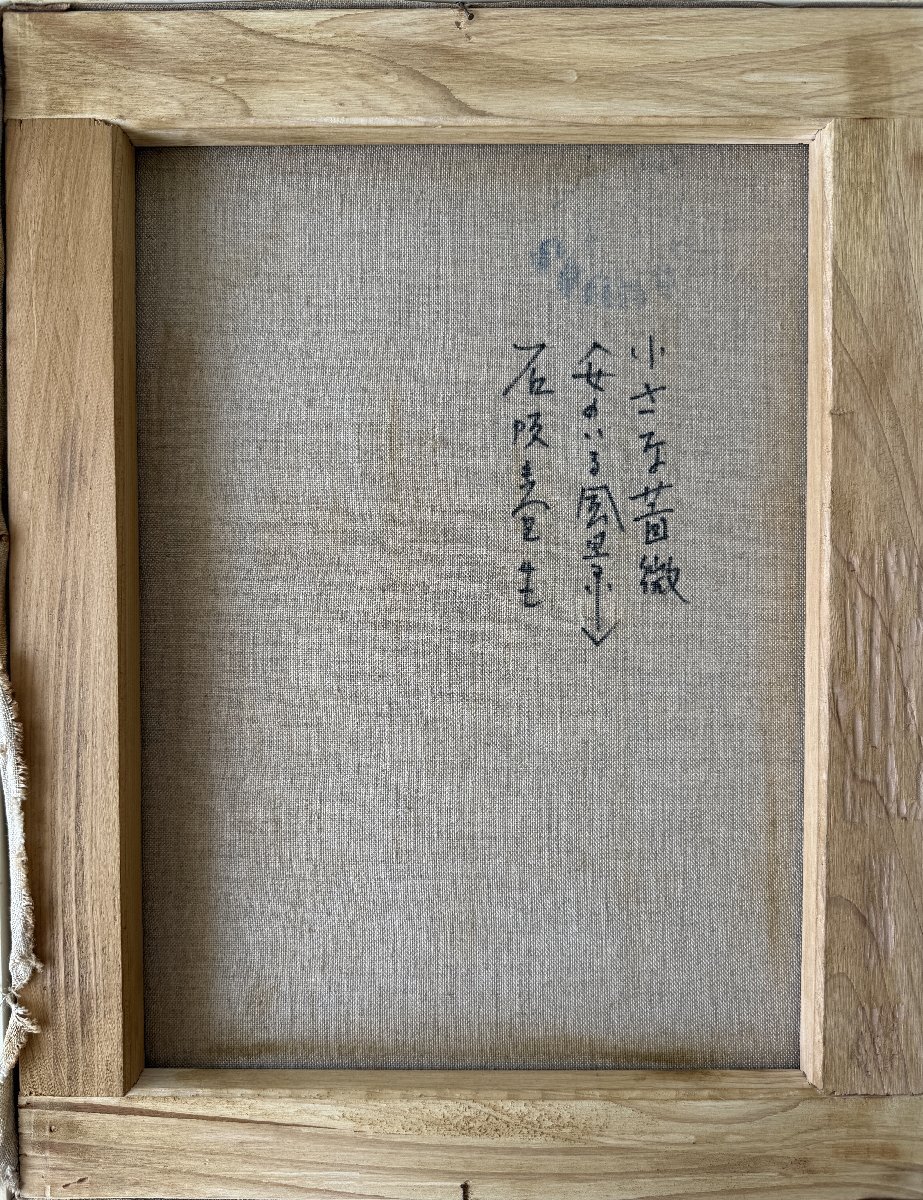 小さな薔微
〈女のいる風景〉
石阪春生